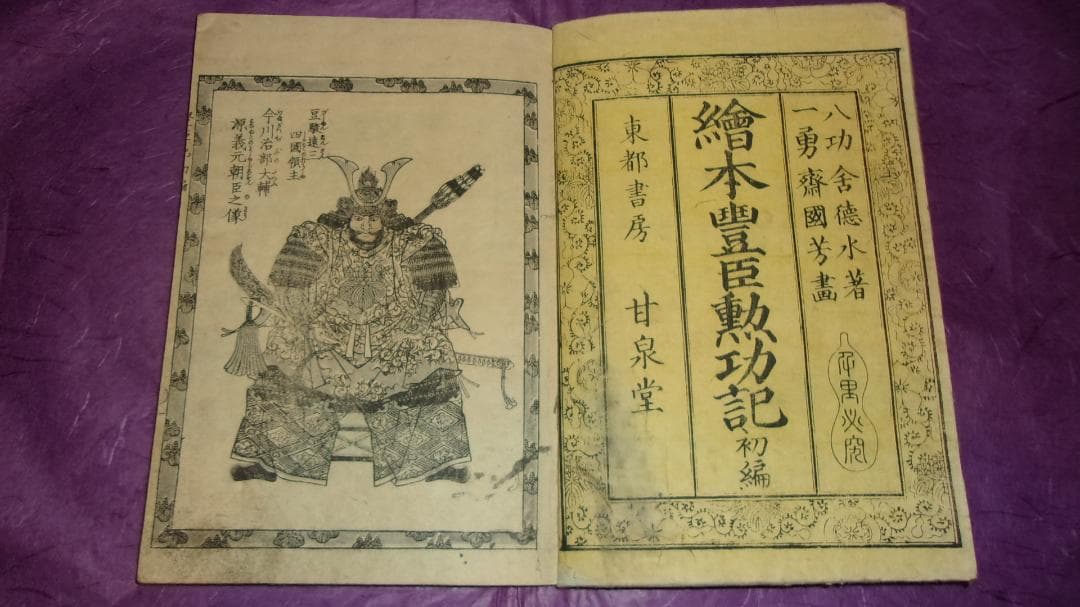 八功舍德水著
一勇齋國芳畵
繪本豐臣勲功記 初編
東都書房 甘泉堂
豆駿遠三
四國領主
今川治部大輔
源義元朝臣之像